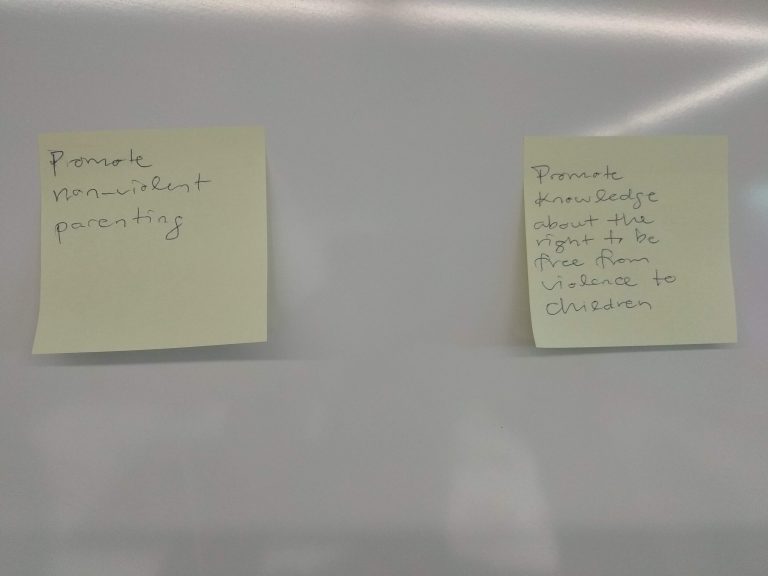 Promote
non-violent
parenting
Promote
knowledge
about the
right to be
free from
violence to
children